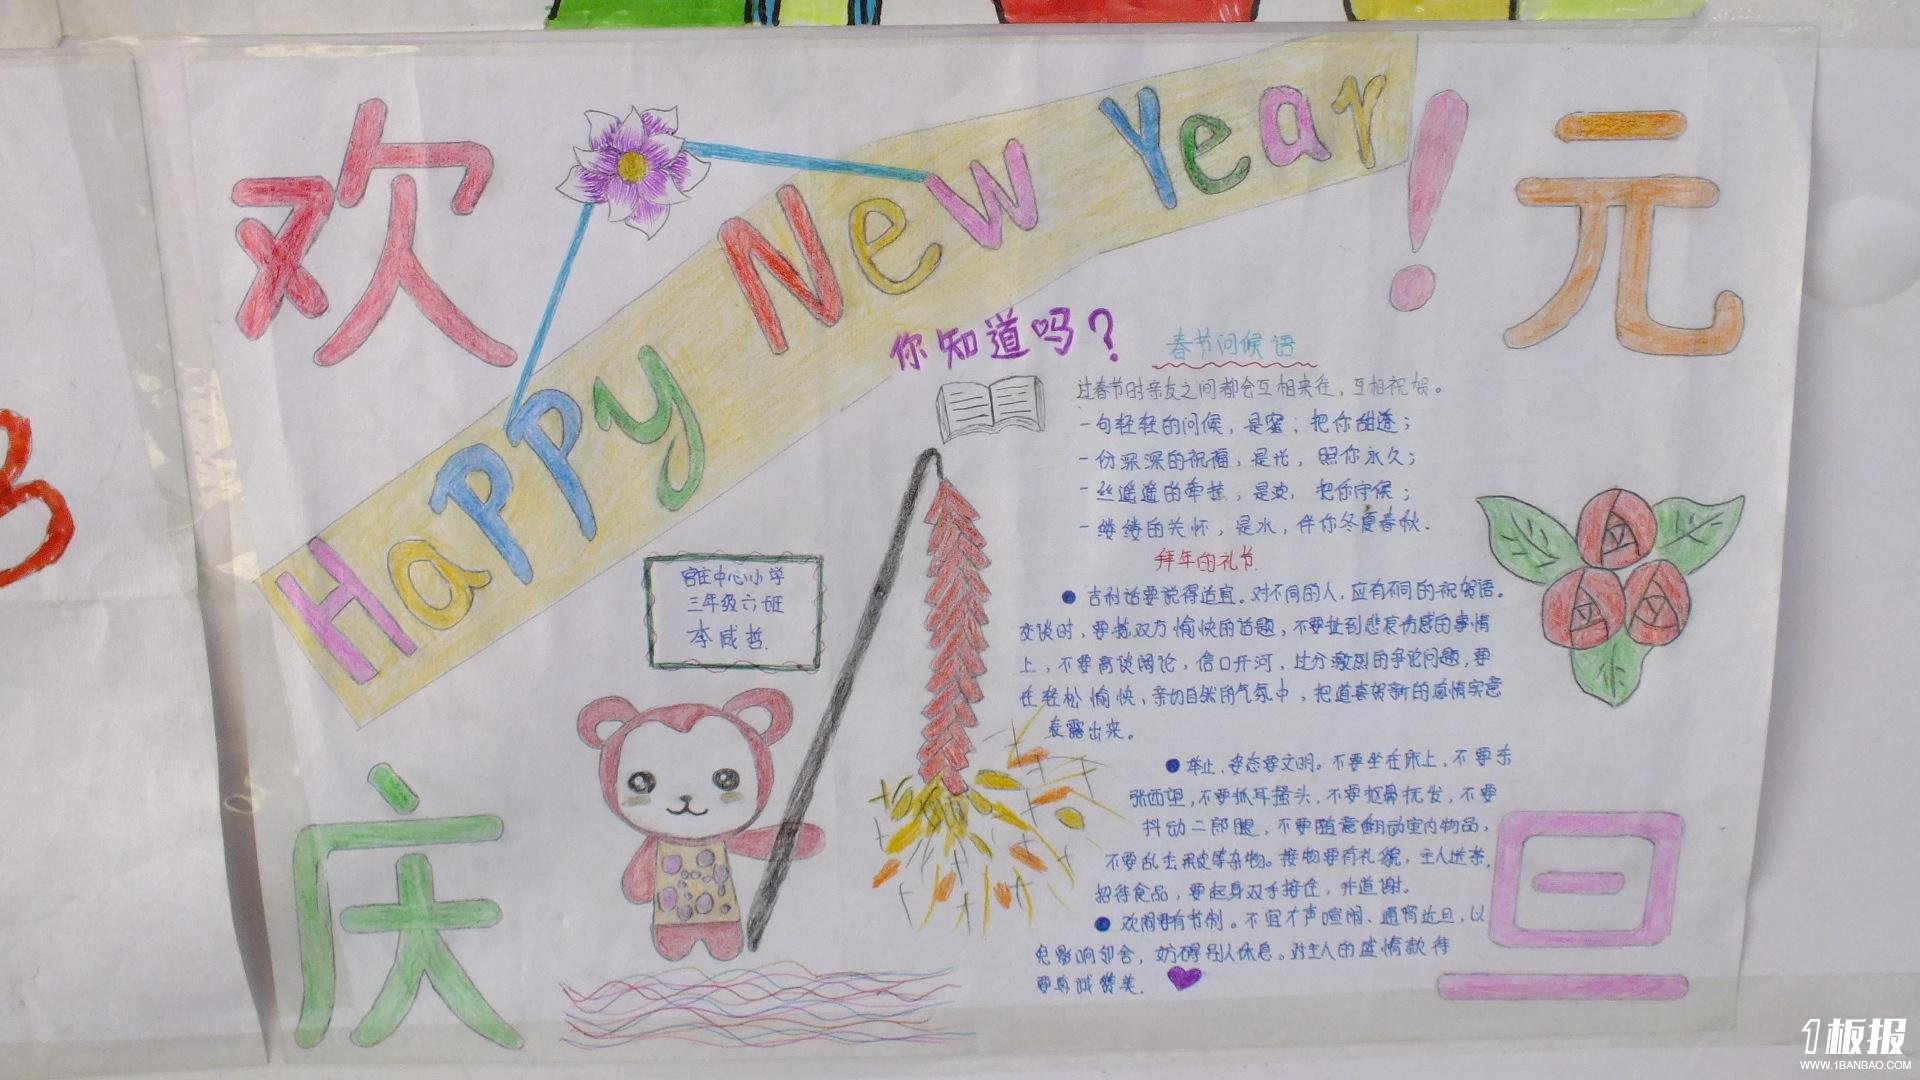 欢
庆
元
旦
Happy New Year!
你知道吗？
春节问候语
过春节时亲友之间都会互相来往，互相祝贺。
一句轻轻的问候，是蜜；把你甜透；
一份深深的祝福，是光，照你永久；
一丝遥遥的牵挂，是浓，把你守候；
一缕缕的关怀，是水，伴你冬夏春秋.
拜年的礼节
宫庄中心小学
三年级六班
李咸哲
●吉利话要说得适宜。对不同的人，应有不同的祝贺语。
交谈时，要拣双方愉快的话题，不要扯到悲哀伤感的事情
上，不要高谈阔论，信口开河，过分激烈的争论问题，要
在轻松愉快、亲切自然的气氛中，把道喜贺新的真情实意
表露出来。
●举止，姿态要文明。不要坐在床上，不要东
张西望，不要抓耳搔头，不要抠鼻抚发，不要
抖动二郎腿，不要随意翻动室内物品，
不要乱丢果皮等杂物。接物要有礼貌，主人送茶，
招待食品，要起身双手接住，并道谢。
●欢闹要有节制。不宜大声喧闹、通宵达旦，以
免影响邻舍，妨碍别人休息。对主人的盛情款待
要真诚赞美.
1板报
WWW.1BANBAO.COM